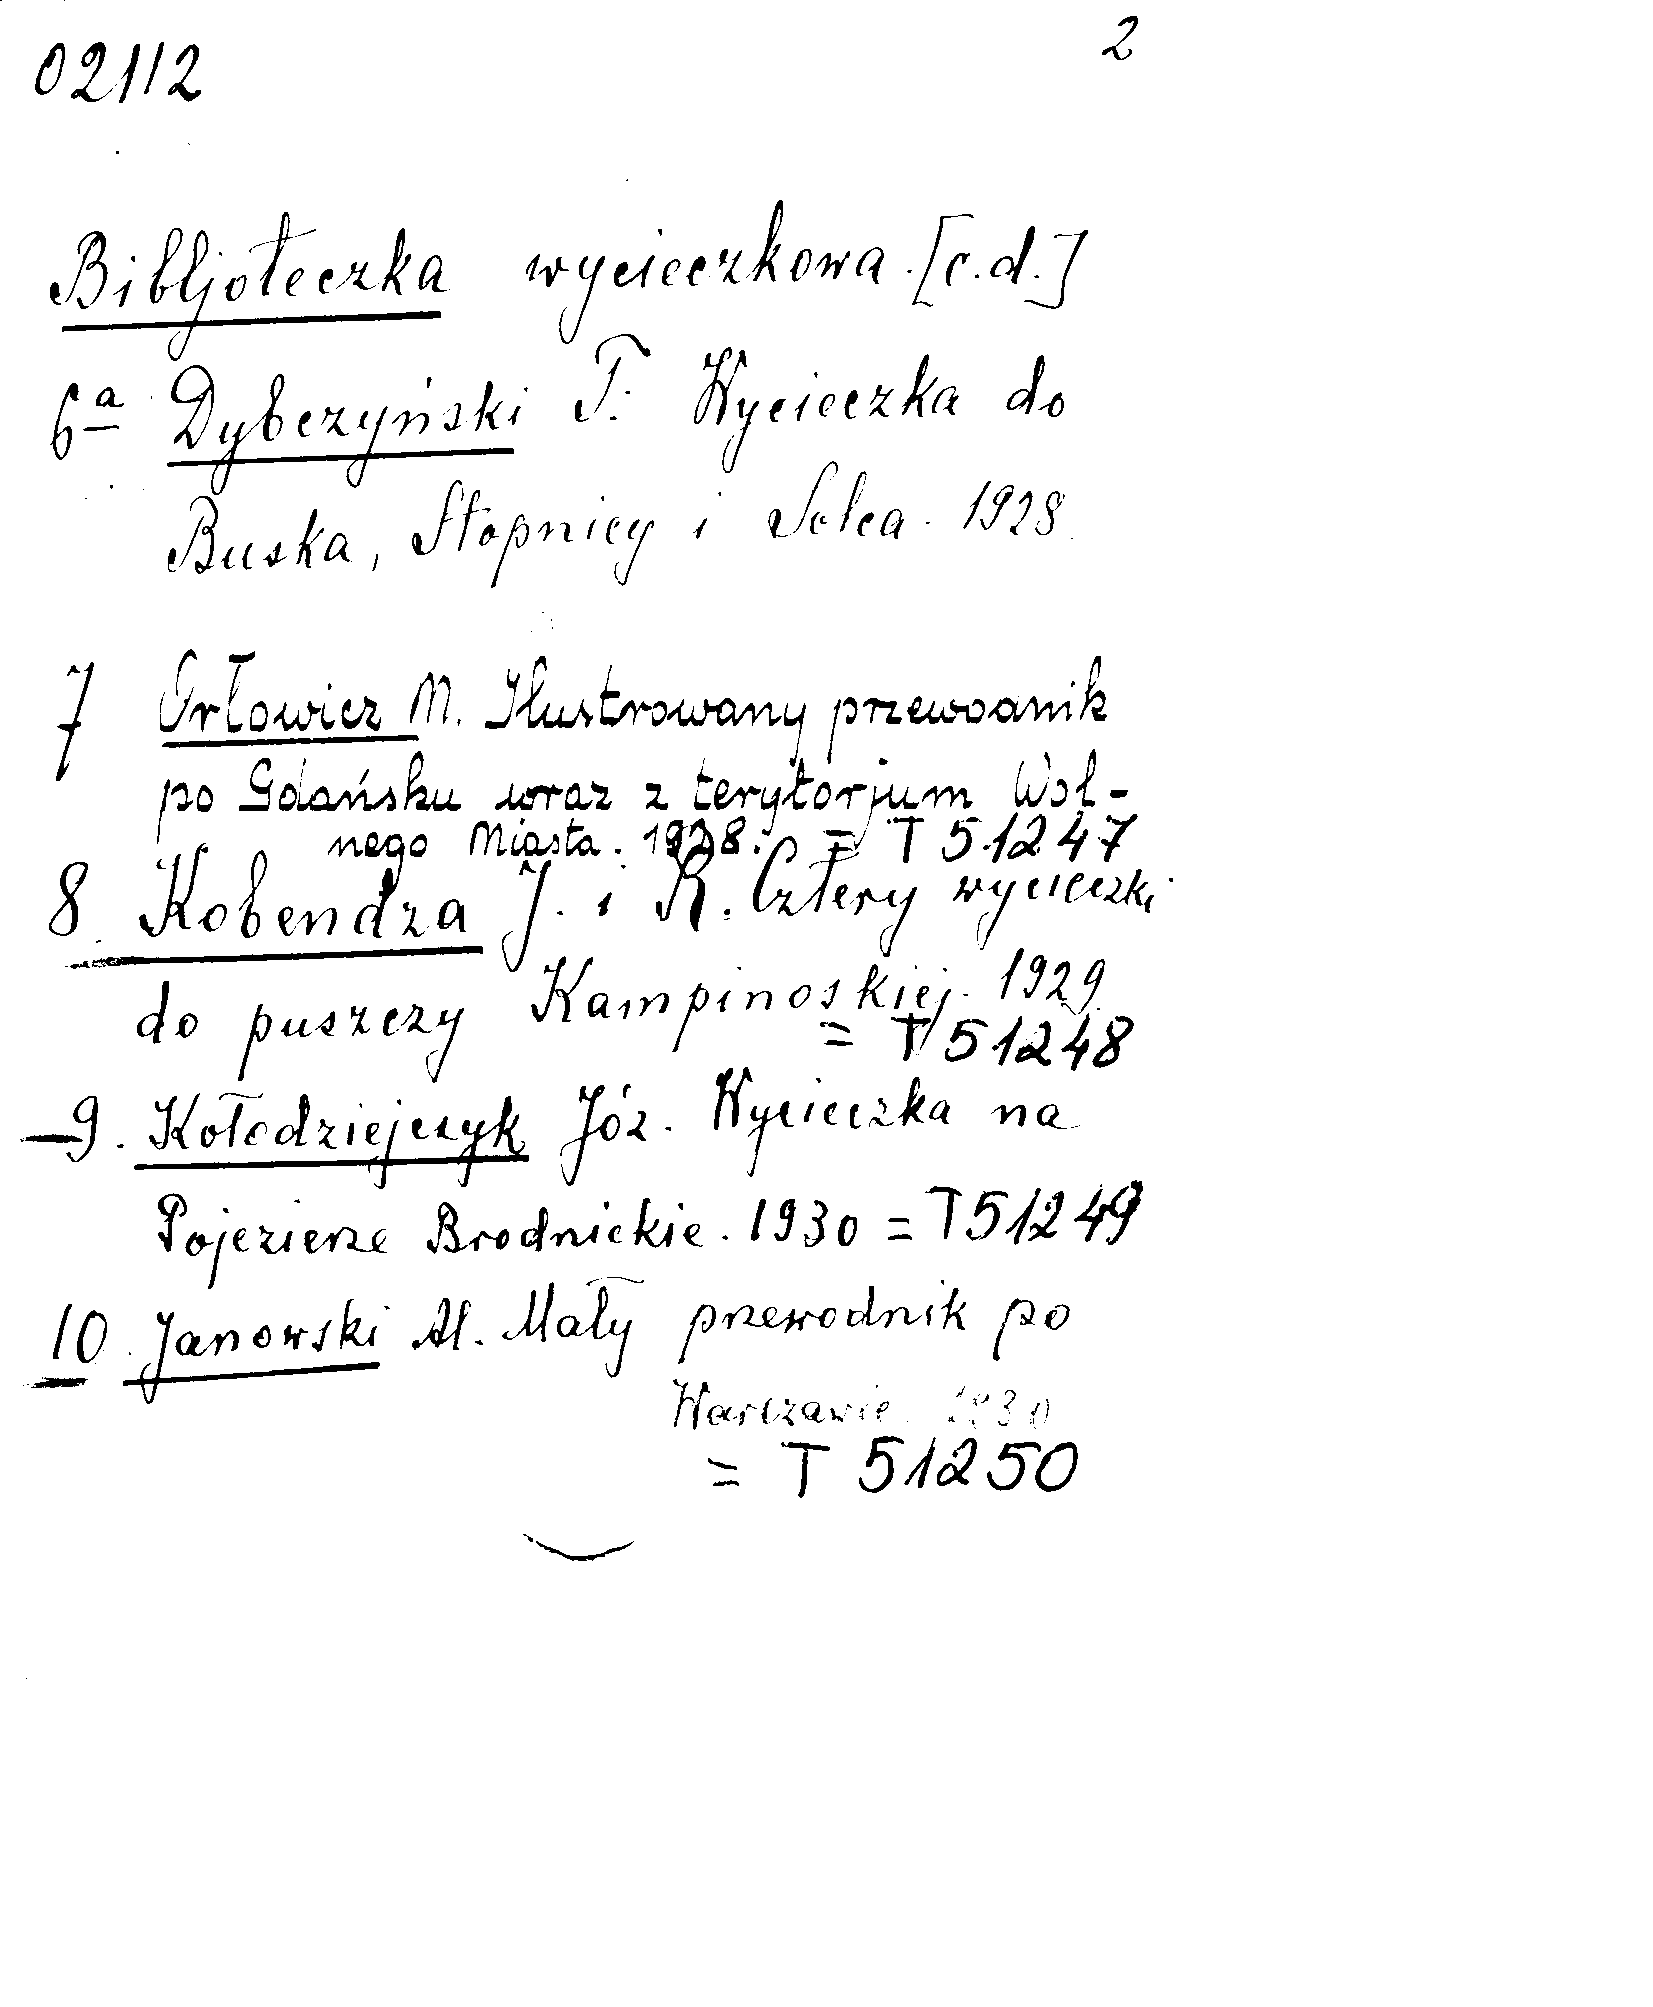 02112
2
Bibljoteczka wycieczkowa. [c.d.]
6a Dybczyński T. Wycieczka do
Buska, Stopnicy i Solca. 1928.
7 Orłowicz M. Ilustrowany przewodnik
po Gdańsku wraz z terytorjum Wol-
nego Miasta. 1928. = T 51247
8. Kobendza J. i R. Cztery wycieczki
do puszczy Kampinoskiej. 1929.
= T 51248
9. Kołodziejczyk Józ. Wycieczka na
Pojezierze Brodnickie. 1930 = T 51249
10. Janowski Al. Mały przewodnik po
Warszawie. 1930
= T 51250